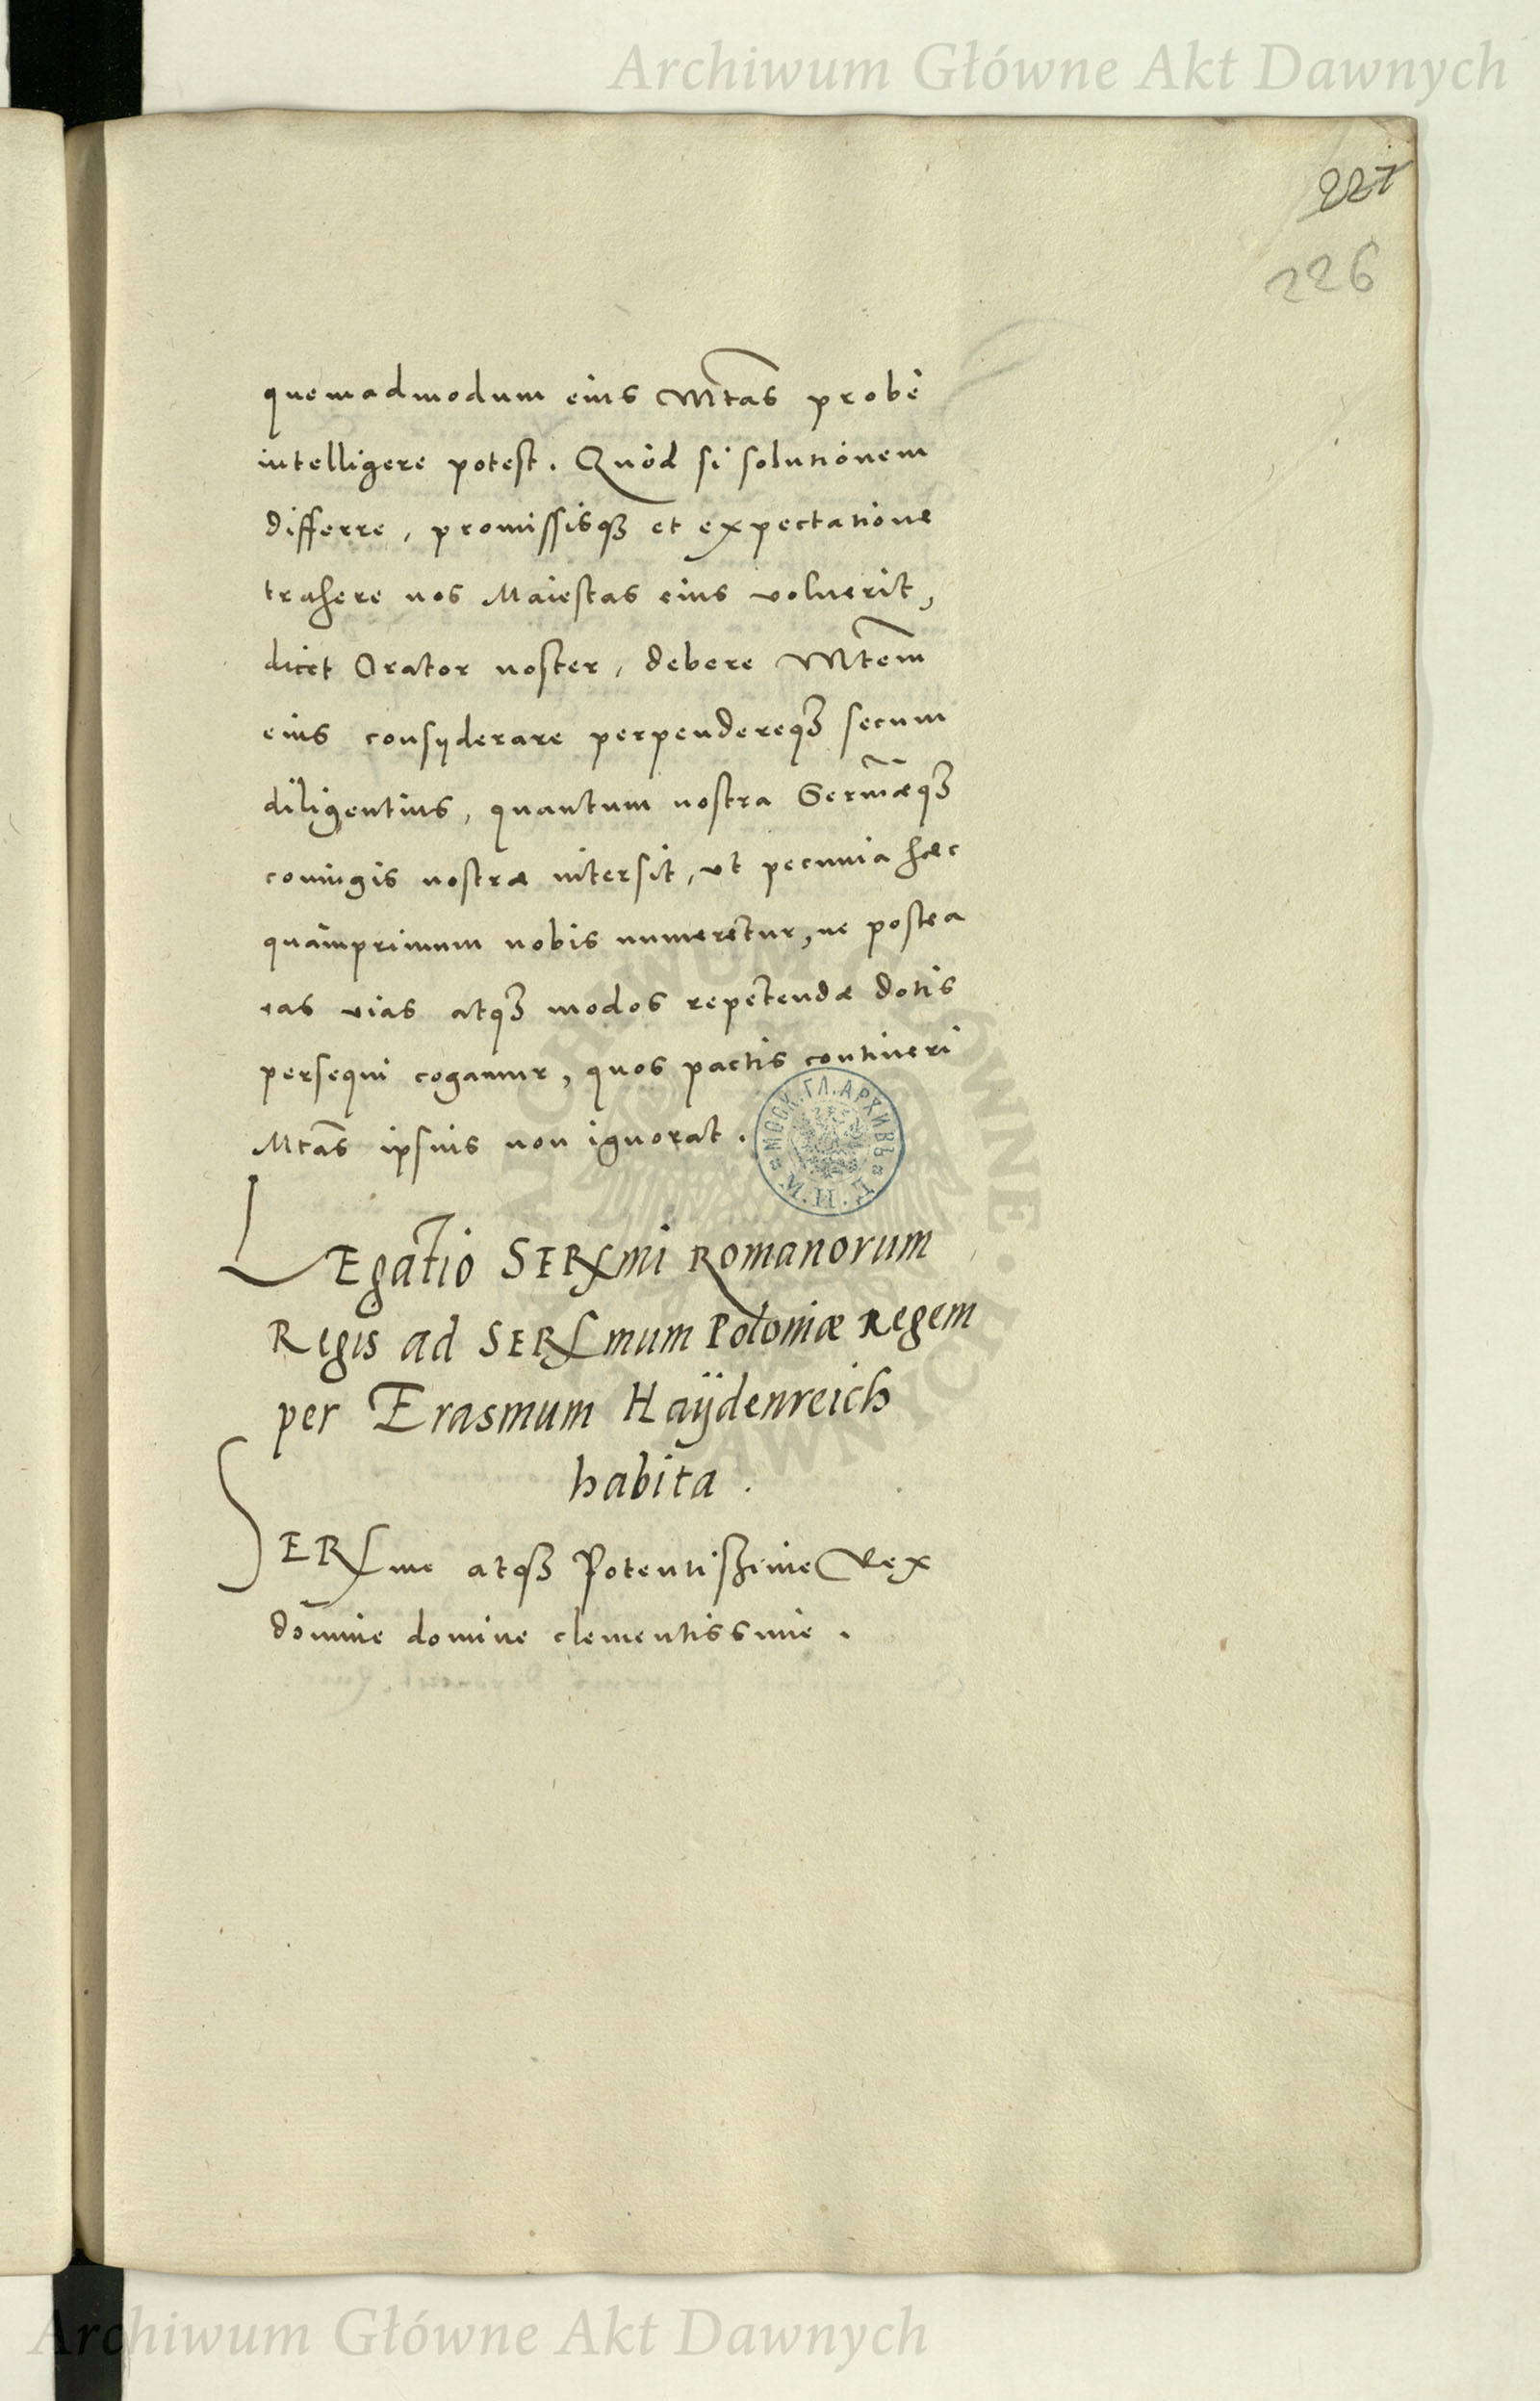 Archiwum Główne Akt Dawnych
227
226
quemadmodum eius Mtas probè
intelligere potest. Quòd si solutionem
differre, promissisq3 et expectatione
trahere nos Maiestas eius voluerit,
dicet Orator noster, debere Mtem
eius consyderare perpendereq3 secum
diligentius, quantum nostra Sermæq3
coniugis nostræ intersit, vt pecunia hæc
quamprimum nobis numeretur, ne postea
eas vias atq3 modos repetendæ dotis
persequi cogamur, quos pactis contineri
Mtas ipsius non ignorat.
МОСК. ГЛ. АРХИВЪ
М. И. Д.
LEgatio SERmi Romanorum
Regis ad SERmum Poloniæ Regem
per Erasmum Haÿdenreich
habita.
SERme atq3 Potentissime Rex
domine domine clementissime.
ARCHIWUM GŁÓWNE · AKT DAWNYCH
Archiwum Główne Akt Dawnych